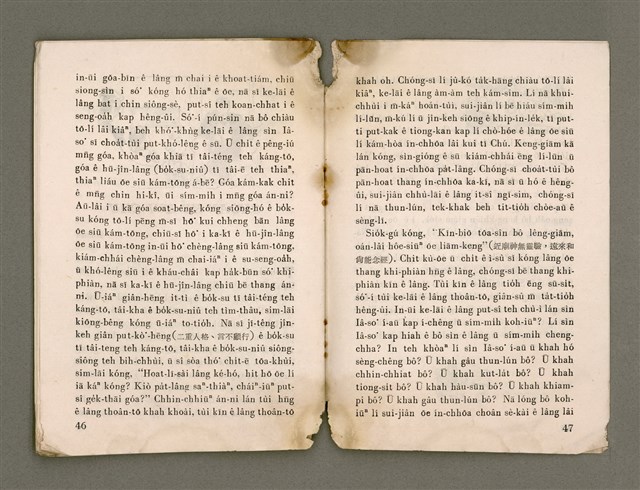 in-ūi gōa-bīn ê lâng m̄ chai i ê khoat-tiám, chiū
siong-sìn i só͘ kóng hó thiaⁿ ê ōe, nā sī ke-lāi ê
lâng bat i chin siông-sè, put-sî teh koan-chhat i ê
seng-oa̍h kap hêng-ûi. Só͘-í pún-sin nā bô chiàu
tō-lí lâi kiâⁿ, beh khó͘-khǹg ke-lāi ê lâng sìn Iâ-
so͘ sī choa̍t-tùi put-khó-lêng ê sū. Ū chi̍t ê pêng-iú
mn̄g góa, khòaⁿ góa khiā tī tâi-téng teh káng-tō,
góa ê hū-jîn-lâng (bo̍k-su-niû) tī tāi-ē teh thiaⁿ,
thiaⁿ liáu ōe siū kám-tōng á-bē? Góa kám-kak chit
ê mn̄g chin hi-kî, ūi sím-mi̍h i mn̄g góa án-ni?
Āu-lâi i ū kā góa soat-bêng, kóng siōng-hó ê bo̍k-
su kóng tō-lí pêng m̄-sī hō͘ kui chheng bān lâng
ōe siū kám-tōng, chiū-sī hō͘ i ka-kī ê hū-jîn-lâng
ōe siū kám-tōng in-ūi hō͘ chèng-lâng siū kám-tōng,
kiám-chhái chèng-lâng m̄ chai-iáⁿ i ê su-seng-oa̍h,
ū khó-lêng siū i ê kháu-châi kap ha̍k-būn só͘ khi-
phiàn, nā sī ka-kī ê hū-jîn-lâng chiū bē thang án-
ni. Ū-iáⁿ giân-hēng it-tì ê bo̍k-su tī tâi-téng teh
káng-tō, tâi-kha ê bo̍k-su-niû teh tìm-thâu, sim-lāi
kiōng-bêng kóng ū-iáⁿ to-tio̍h. Nā sī jī-têng jîn-
keh giân put-kò͘-hēng(二重人格、言不顧行) ê bo̍k-su
tī tâi-teng teh káng-tō, tâi-kha ê bo̍k-su-niû siông-
siông teh bih-chhùi, ū sî sòa thó͘ chi̍t-ē tōa-khùi,
sim-lāi kóng, "Hoat-lī-sài lâng ké-hó, hit hō ōe lí
iā káⁿ kóng? Kiò pa̍t-lâng saⁿ-thiàⁿ, cháiⁿ-iūⁿ put-
sî ge̍k-thāi góa?" Chhin-chhiūⁿ án-ni lán tùi hn̄g
ê lâng thoân-tō khah khoài, tùi kīn ê lâng thoân-tō
46
khah oh. Chóng-sī lí jû-kó ta̍k-hāng chiàu tō-lí lâi
kiâⁿ, ke-lāi ê lâng àm-àm teh kám-sim. Lí nā khui-
chhùi i m̄-káⁿ hoán-tùi, sui-jiân lí bē hiáu sím-mih
lí-lūn, m̄-kú lí ū jīn-keh siōng ê khip-ín-le̍k, tī put-
ti put-kak ê tiong-kan kap lí chò-hóe ê lâng ōe siū
lí kám-hòa ín-chhōa lâi kui tī Chú. Keng-giām kā
lán kóng, sin-gióng ê sū kiám-chhái ēng lí-lūn ū
pān-hoat ín-chhōa pa̍t-lâng. Chóng-sī choa̍t-tùi bô
pān-hoat thang ín-chhōa ka-kī, nā sī ū hó ê hêng-
ûi, sui-jiân chhù-lāi ê lâng it-sî ngī-sim, chóng-sī
lí nā thun-lún, tek-khak beh tit-tio̍h chòe-āu ê
sèng-lī.
Sio̍k-gú kóng, "Kīn-biō tōa-sîn bô lêng-giām,
oán-lâi hôe-siūⁿ ōe liām-keng"(近廟神無靈驗，遠來和
尙能念經). Chit kù-ōe ū chit ê ì-sù sī kóng lâng ōe
thang khi-phiàn hn̄g ê lâng, chóng-sī bē thang khi-
phiàn kīn ê lâng. Tùi kīn ê lâng tio̍h ēng sū-si̍t,
só͘-í tùi ke-lāi ê lâng thoân-tō, giân-sú m̄ ta̍t-tio̍h
hêng-ûi. In-ūi ke-lāi ê lâng put-sî teh chú-ì lán sìn
Iâ-so͘ í-āu kap í-chêng ū sím-mi̍h koh-iūⁿ? Lí sìn
Iâ-so͘ kap hiah ê bô sìn ê lâng ū sím-mi̍h cheng-
chha? In teh khòaⁿ lí sìn Iâ-so͘ í-āu ū khah hó
sèng-chêng bô? Ū khah gâu thun-lún bô? Ū khah
chhin-chhiat bô? Ū khah kut-la̍t bô? Ū khah
tiong-sit bô? Ū khah hàu-sūn bô? Ū khah khiam-
pi bô? Ū khah gâu thun-lún bô? Nā lóng bô koh-
iūⁿ lí sui-jiân ōe ín-chhōa choân sè-kài ê lâng lâi
47